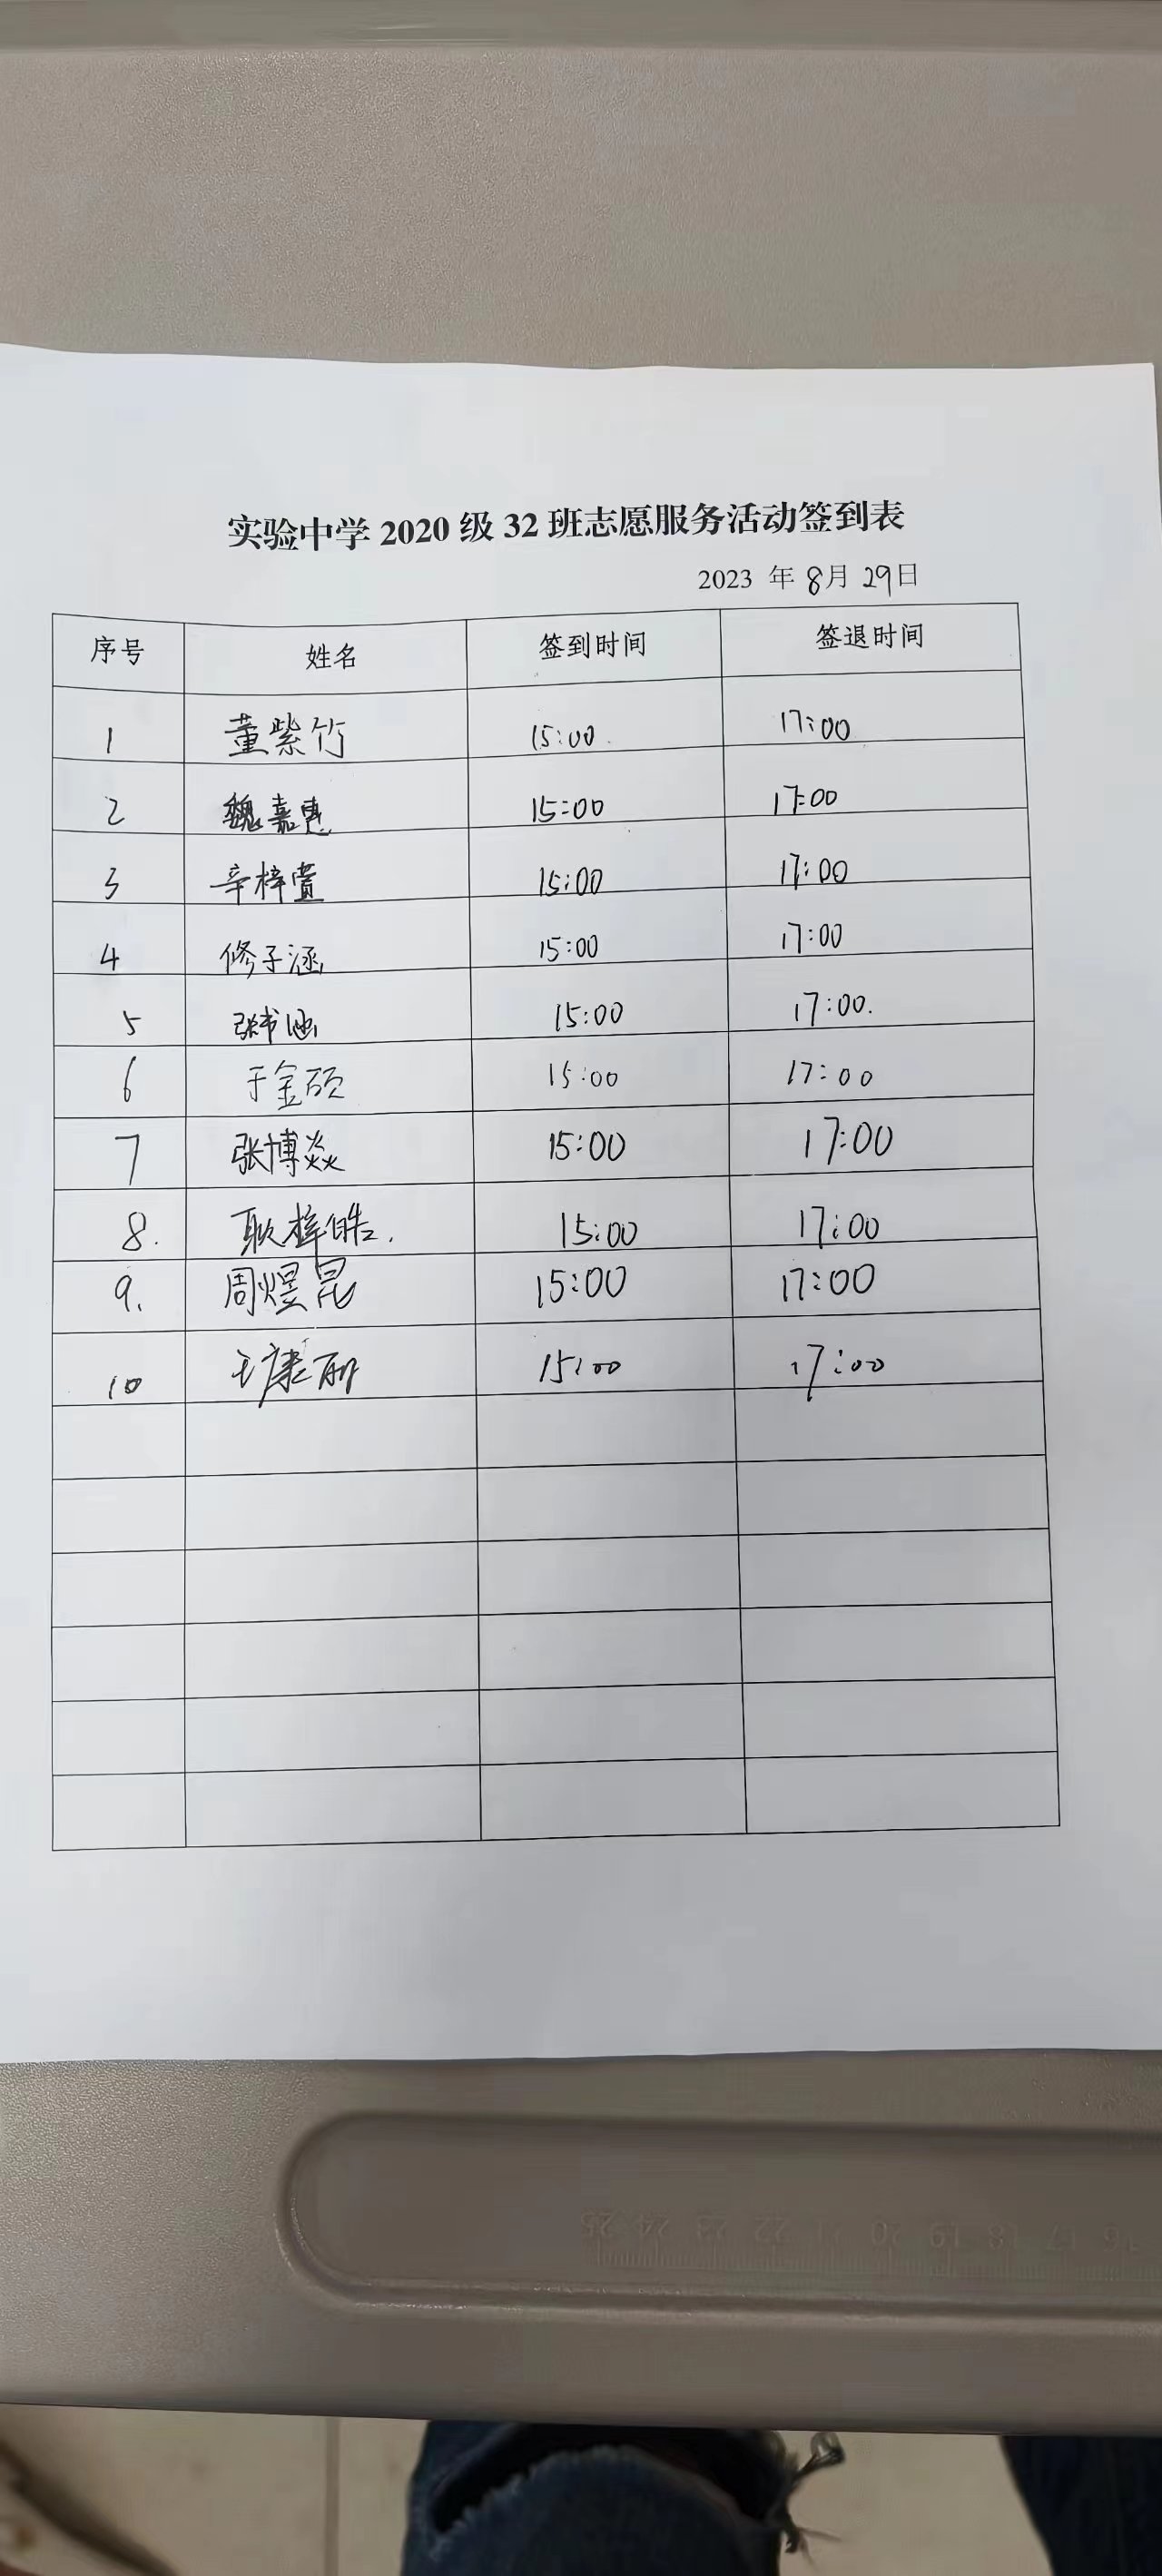 实验中学 2020 级 32 班志愿服务活动签到表
2023 年 8月 29日
序号 姓名 签到时间 签退时间
1 董紫竹 15:00 17:00
2 魏嘉惠 15:00 17:00
3 辛梓萱 15:00 17:00
4 修子涵 15:00 17:00
5 张书涵 15:00 17:00.
6 于金硕 15:00 17:00
7 张博焱 15:00 17:00
8. 耿梓皓. 15:00 17:00
9. 周煜昆 15:00 17:00
10 王康丽 15:00 17:00
25 24 23 22 21 20 19 18 17 16